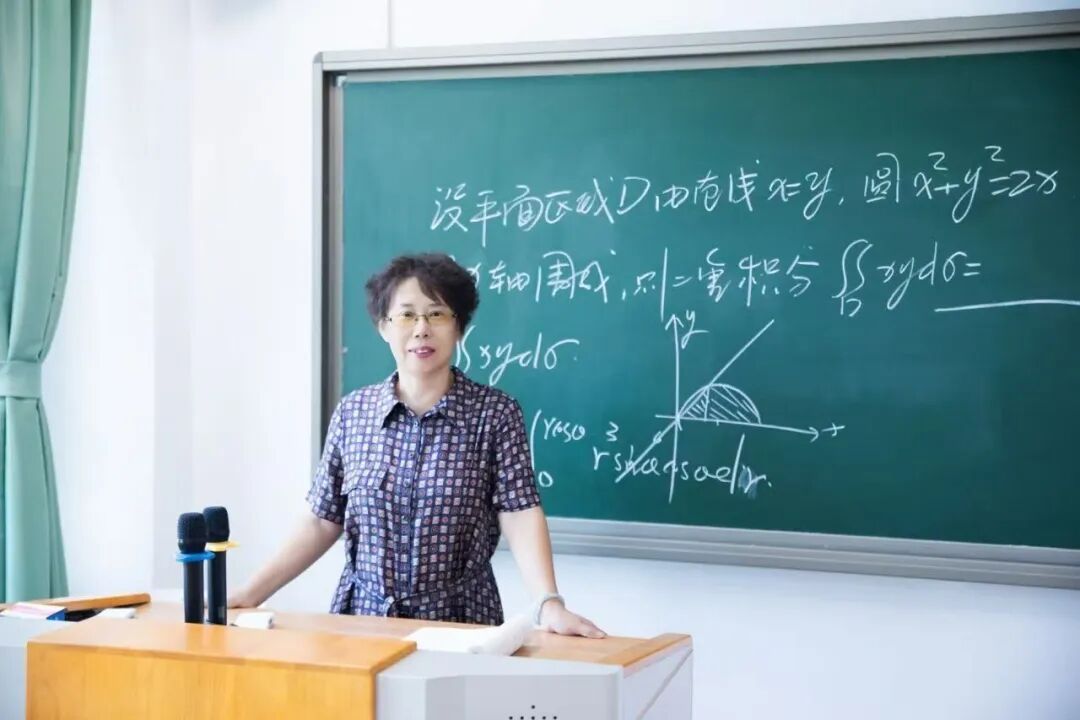 设平面区域D由直线x=y,圆x²+y²=2x
轴围成,则二重积分∬_D xydσ=
∬xydσ.
y
x
rcosθ 3
0 r sinθcosθdr.